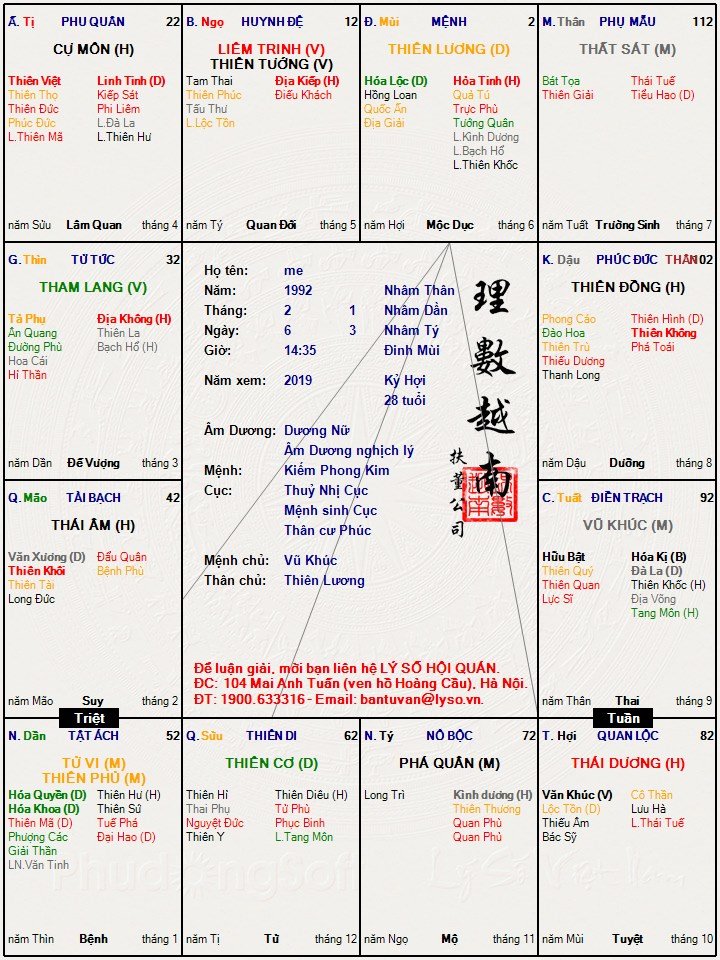 Ấ. Tị PHU QUÂN 22
CỰ MÔN (H)
Thiên Việt Linh Tinh (D)
Thiên Thọ Kiếp Sát
Thiên Đức Phi Liêm
Phúc Đức L.Đà La
L.Thiên Mã L.Thiên Hư
năm Sửu Lâm Quan tháng 4
B. Ngọ HUYNH ĐỆ 12
LIÊM TRINH (V)
THIÊN TƯỚNG (V)
Tam Thai Địa Kiếp (H)
Thiên Phúc Điếu Khách
Tấu Thư
L.Lộc Tồn
năm Tý Quan Đới tháng 5
Đ. Mùi MỆNH 2
THIÊN LƯƠNG (D)
Hóa Lộc (D) Hỏa Tinh (H)
Hồng Loan Quả Tú
Quốc Ấn Trực Phù
Địa Giải Tướng Quân
L.Kình Dương
L.Bạch Hổ
L.Thiên Khốc
năm Hợi Mộc Dục tháng 6
M. Thân PHỤ MẪU 112
THẤT SÁT (M)
Bát Tọa Thái Tuế
Thiên Giải Tiểu Hao (D)
năm Tuất Trường Sinh tháng 7
G. Thìn TỬ TỨC 32
THAM LANG (V)
Tả Phụ Địa Không (H)
Ân Quang Thiên La
Đường Phù Bạch Hổ (H)
Hoa Cái
Hỉ Thần
năm Dần Đế Vượng tháng 3
Họ tên: me
Năm: 1992 Nhâm Thân
Tháng: 2 1 Nhâm Dần
Ngày: 6 3 Nhâm Tý
Giờ: 14:35 Đinh Mùi
Năm xem: 2019 Kỷ Hợi
28 tuổi
Âm Dương: Dương Nữ
Âm Dương nghịch lý
Mệnh: Kiếm Phong Kim
Cục: Thuỷ Nhị Cục
Mệnh sinh Cục
Thân cư Phúc
Mệnh chủ: Vũ Khúc
Thân chủ: Thiên Lương
理數越南
扶董公司
Để luận giải, mời bạn liên hệ LÝ SỐ HỘI QUÁN.
ĐC: 104 Mai Anh Tuấn (ven hồ Hoàng Cầu), Hà Nội.
ĐT: 1900.633316 - Email: bantuvan@lyso.vn.
K. Dậu PHÚC ĐỨC THÂN 102
THIÊN ĐỒNG (H)
Phong Cáo Thiên Hình (D)
Đào Hoa Thiên Không
Thiên Trù Phá Toái
Thiếu Dương
Thanh Long
năm Dậu Dưỡng tháng 8
Q. Mão TÀI BẠCH 42
THÁI ÂM (H)
Văn Xương (D) Đẩu Quân
Thiên Khôi Bệnh Phù
Thiên Tài
Long Đức
năm Mão Suy tháng 2
C. Tuất ĐIỀN TRẠCH 92
VŨ KHÚC (M)
Hữu Bật Hóa Kị (B)
Thiên Quý Đà La (D)
Thiên Quan Thiên Khốc (H)
Lực Sĩ Địa Võng
Tang Môn (H)
năm Thân Thai tháng 9
Triệt
Tuần
N. Dần TẬT ÁCH 52
TỬ VI (M)
THIÊN PHỦ (M)
Hóa Quyền (D) Thiên Hư (H)
Hóa Khoa (D) Thiên Sứ
Thiên Mã (D) Tuế Phá
Phượng Các Đại Hao (D)
Giải Thần
LN.Văn Tinh
năm Thìn Bệnh tháng 1
Q. Sửu THIÊN DI 62
THIÊN CƠ (D)
Thiên Hỉ Thiên Diêu (H)
Thai Phụ Tử Phù
Nguyệt Đức Phục Binh
Thiên Y L.Tang Môn
năm Tị Tử tháng 12
N. Tý NÔ BỘC 72
PHÁ QUÂN (M)
Long Trì Kình dương (H)
Thiên Thương
Quan Phù
Quan Phủ
năm Ngọ Mộ tháng 11
T. Hợi QUAN LỘC 82
THÁI DƯƠNG (H)
Văn Khúc (V) Cô Thần
Lộc Tồn (D) Lưu Hà
Thiếu Âm L.Thái Tuế
Bác Sỹ
năm Mùi Tuyệt tháng 10
Phuđổngsoft
Lý Số Việt Nam